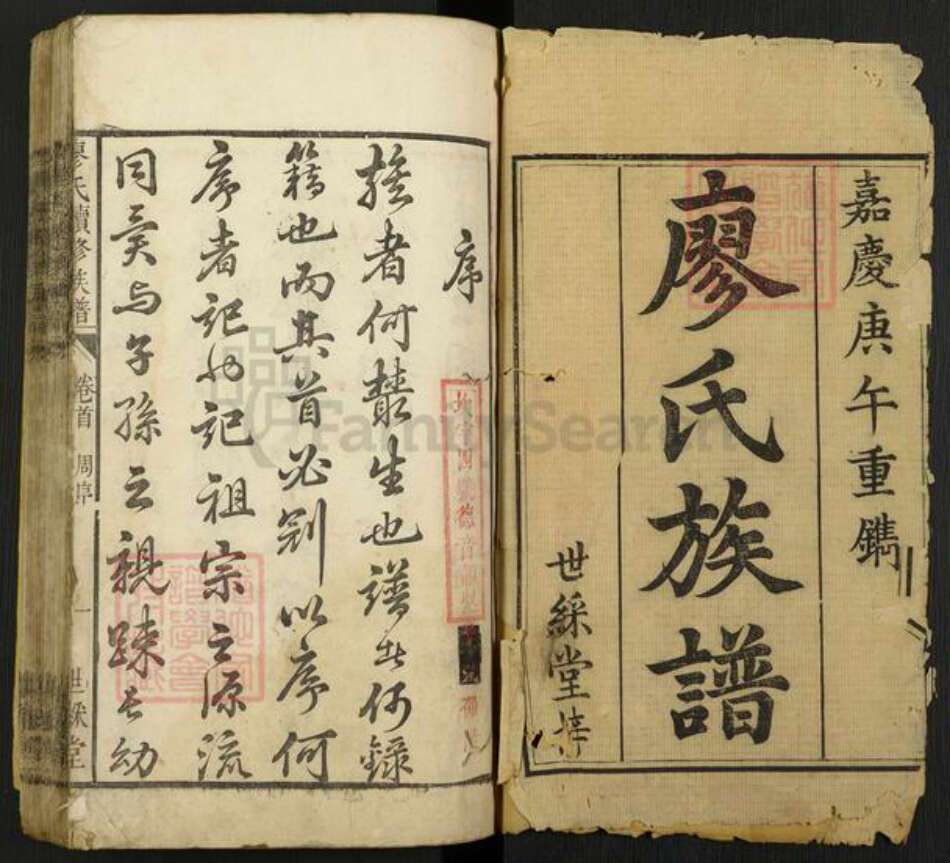 嘉慶庚午重鐫
廖氏族譜
世綵堂梓
序
族者何叢生也譜者何錄
籍也而其首必列以序何
序者記也記祖宗之源流
同異与子孫之親踈長幼
廖氏續修族譜 卷首 周序 一 世綵堂
FamilySearch